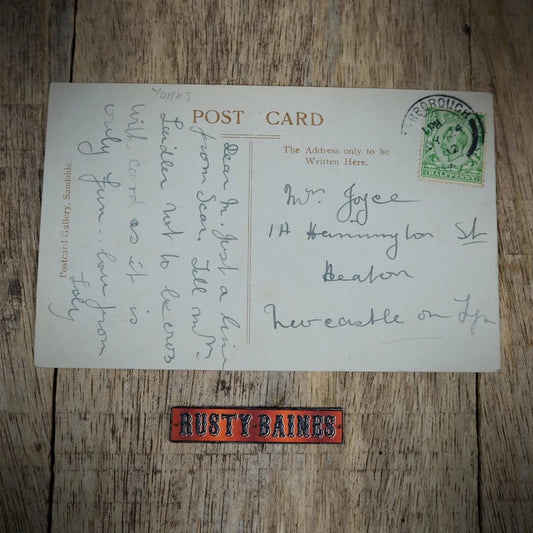 YORKS
POST CARD
The Address only to be
Written Here.
RBOROUGH
12
HALFPENNY
Dear M. Just a line
from Scar. Tell
not to be cross
with card as it is
only fun.. love from
Mr Joyce
1A Hannington St
Heaton
Newcastle on Tyne
Postcard Gallery, Sandside.
RUSTY BAINES